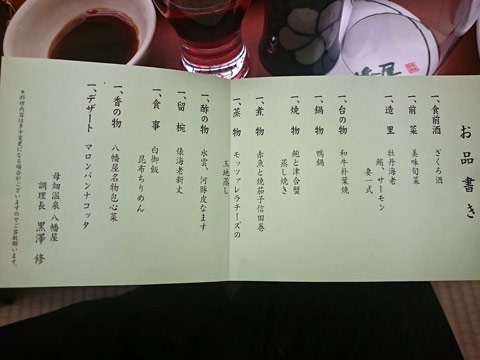 お品書き
一、食前酒 ざくろ酒
一、前菜 美味旬菜
一、造里 牡丹海老
鮪、サーモン
妻一式
一、台の物 和牛朴葉焼
一、鍋物 鴨鍋
一、焼物 鮑と津合蟹
蒸し焼き
一、煮物 赤魚と焼茄子信田巻
一、蒸物 モッツァレラチーズの
玉地蒸し
一、酢の物 水雲、河豚皮なます
一、留椀 俵海老新丈
一、食事 白御飯
昆布ちりめん
一、香の物 八幡屋名物包心菜
一、デザート マロンパンナコッタ
母畑温泉 八幡屋
調理長 黒澤 修
*料理内容は多少変更になる場合がございますのでご容赦願います。